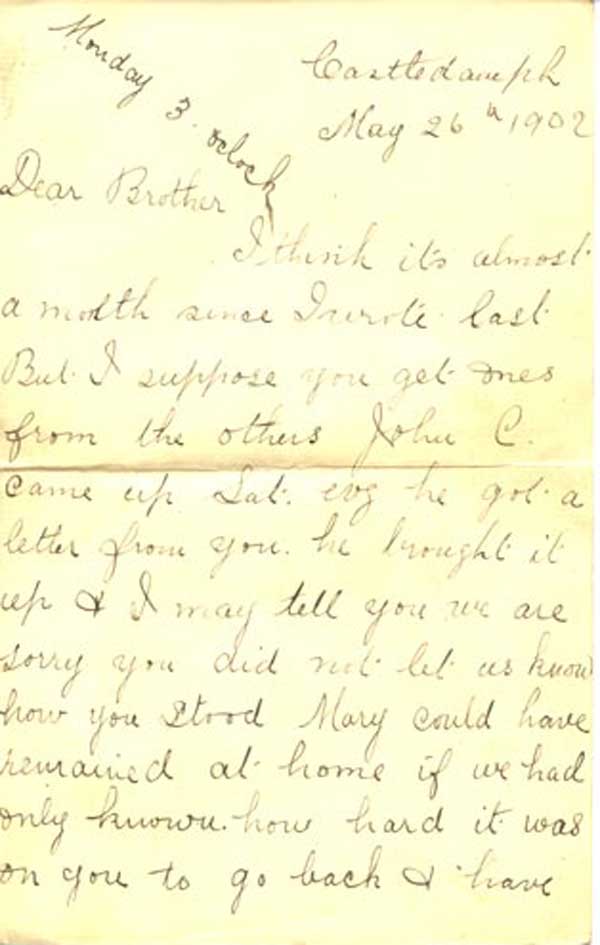 Monday 3. oclock
Castledamph
May 26th 1902
Dear Brother
I think its almost
a month since I wrote last
But I suppose you get ones
from the others John C.
came up Sat. evg he got a
letter from you. he brought it
up & I may tell you we are
sorry you did not let us know
how you Stood Mary could have
remained at home if we had
only known. how hard it was
on you to go back & have